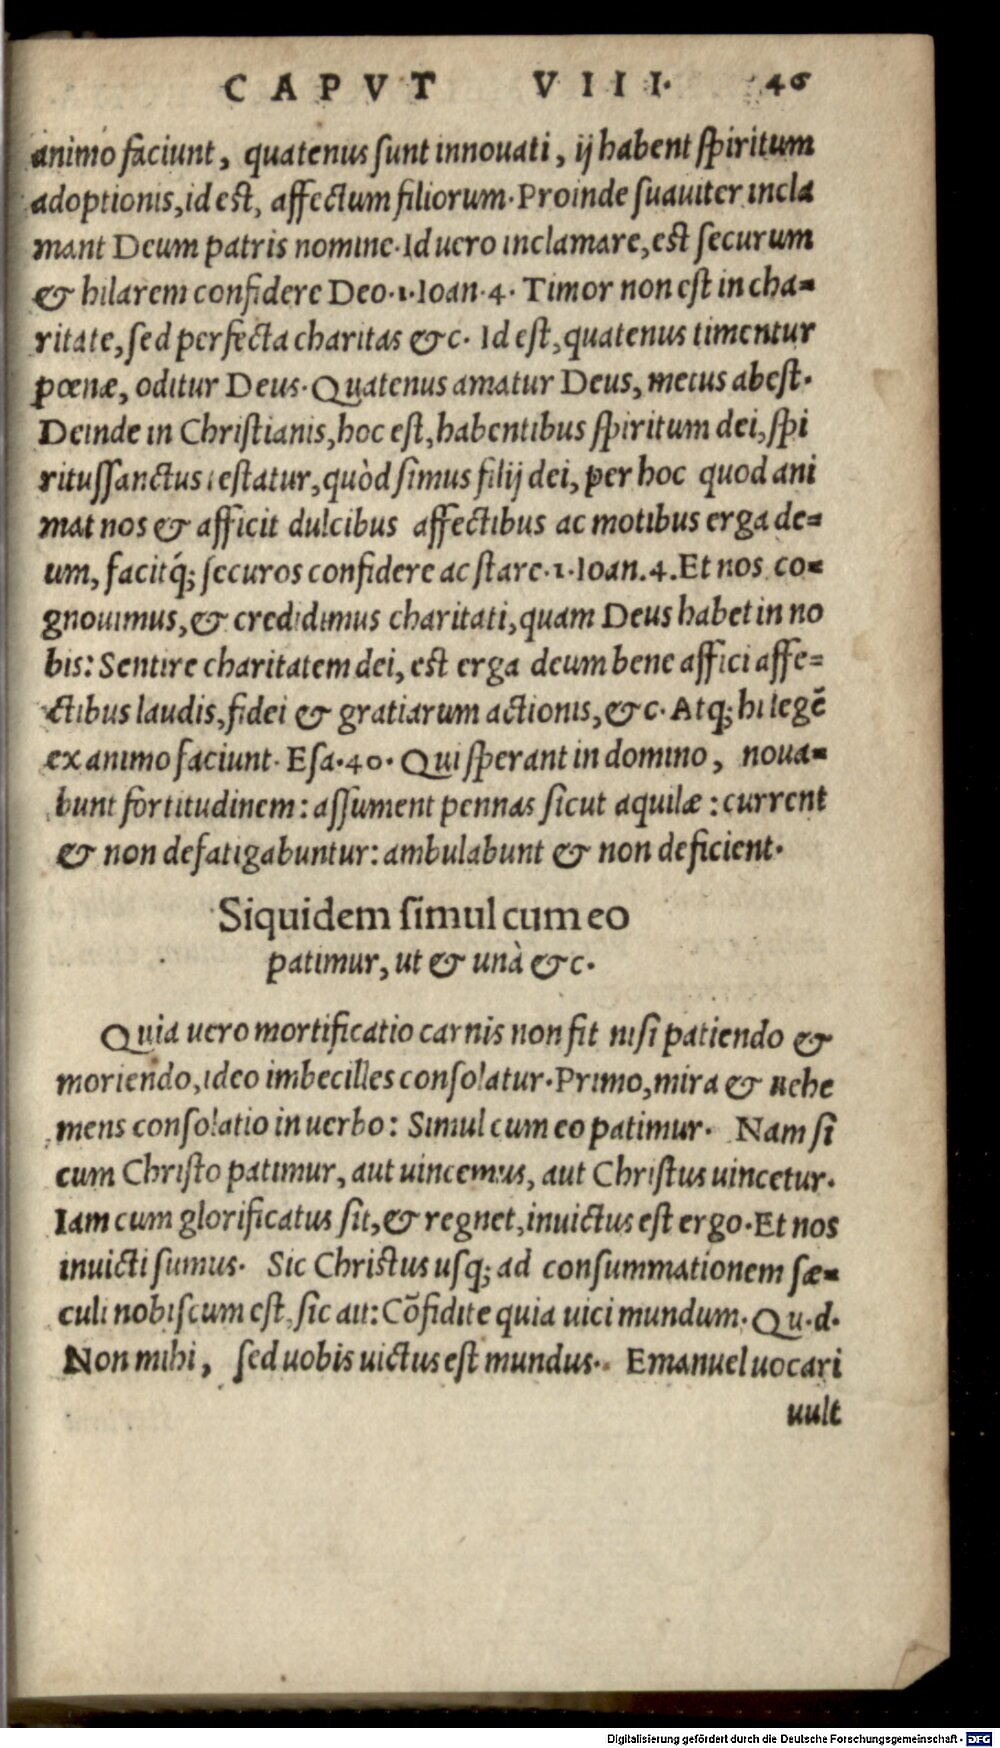 CAPVT VIII. 46
animo faciunt, quatenus sunt innouati, ij habent spiritum
adoptionis, id est, affectum filiorum. Proinde suauiter incla
mant Deum patris nomine. Id uero inclamare, est securum
& hilarem confidere Deo. 1. Ioan. 4. Timor non est in cha=
ritate, sed perfecta charitas &c. Id est, quatenus timentur
pœnæ, oditur Deus. Quatenus amatur Deus, metus abest.
Deinde in Christianis, hoc est, habentibus spiritum dei, spi
ritussanctus testatur, quòd simus filij dei, per hoc quod ani
mat nos & afficit dulcibus affectibus ac motibus erga de=
um, facitq́; securos confidere ac stare. 1. Ioan. 4. Et nos co=
gnouimus, & credidimus charitati, quam Deus habet in no
bis: Sentire charitatem dei, est erga deum bene affici affe=
ctibus laudis, fidei & gratiarum actionis, &c. Atq; hi legē
ex animo faciunt. Esa. 40. Qui sperant in domino, noua=
bunt fortitudinem: assument pennas sicut aquilæ: current
& non defatigabuntur: ambulabunt & non deficient.
Siquidem simul cum eo
patimur, ut & unà &c.
Quia uero mortificatio carnis non fit nisi patiendo &
moriendo, ideo imbecilles consolatur. Primo, mira & uehe
mens consolatio in uerbo: Simul cum eo patimur. Nam si
cum Christo patimur, aut uincemus, aut Christus uincetur.
Iam cum glorificatus sit, & regnet, inuictus est ergo. Et nos
inuicti sumus. Sic Christus usq; ad consummationem sæ=
culi nobiscum est, sic ait: Cōfidite quia uici mundum. Qu. d.
Non mihi, sed uobis uictus est mundus. Emanuel uocari
uult
Digitalisierung gefördert durch die Deutsche Forschungsgemeinschaft - DFG